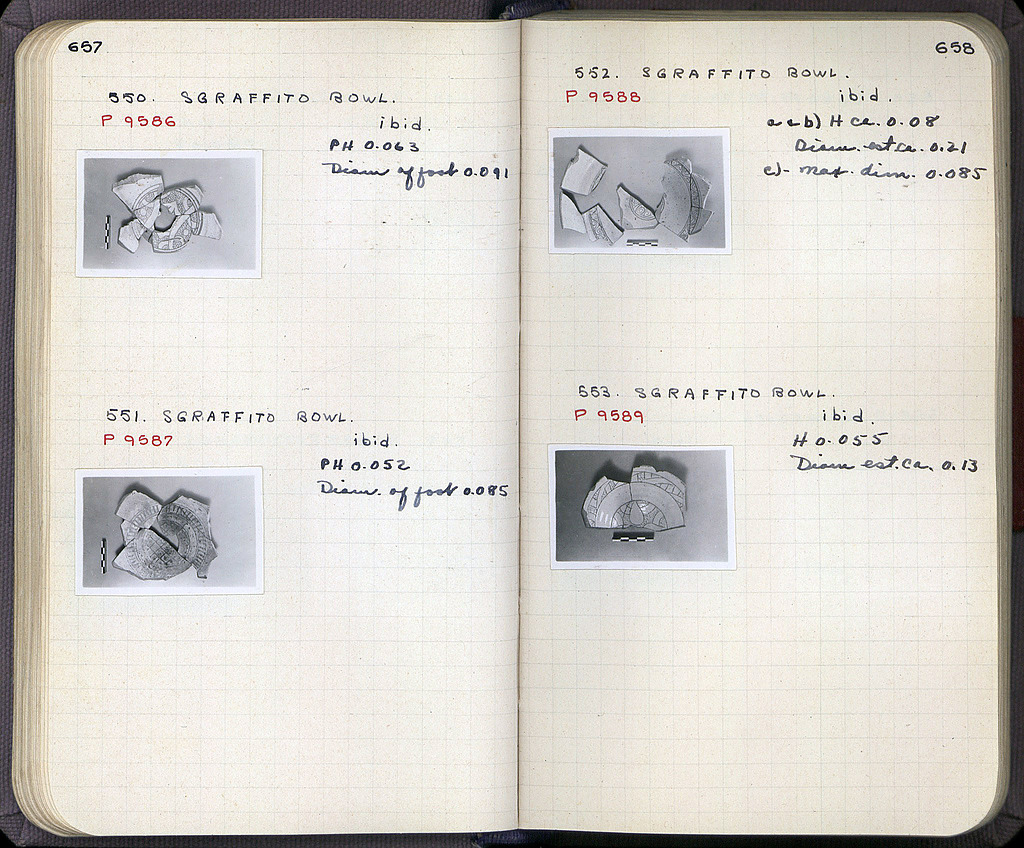 657
550. SGRAFFITO BOWL.
P 9586
ibid.
PH 0.063
Diam of foot 0.091
551. SGRAFFITO BOWL.
P 9587
ibid.
PH 0.052
Diam. of foot 0.085
658
552. SGRAFFITO BOWL.
P 9588
ibid.
a + b) H ca. 0.08
Diam. est. ca. 0.21
c) - max. dim. 0.085
553. SGRAFFITO BOWL.
P 9589
ibid.
H 0.055
Diam est. ca. 0.13